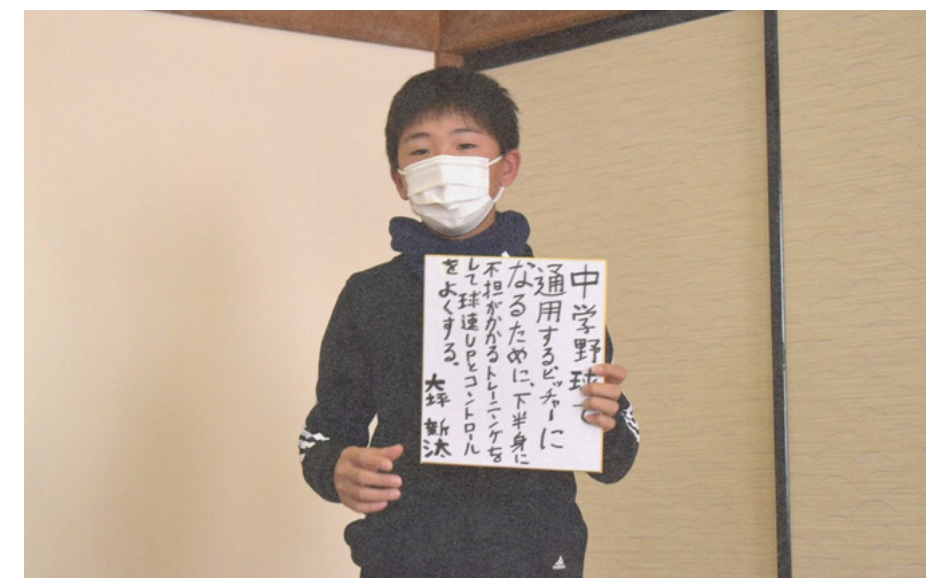 中学野球で
通用するピッチャーに
なるために、下半身に
不担がかかるトレーニングを
して球速UPとコントロール
をよくする。
大坪 新汰